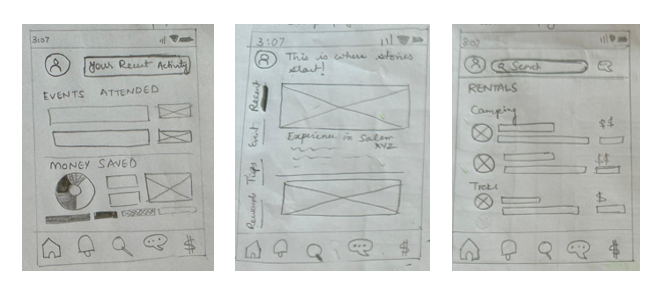 3:07
Your Recent Activity
EVENTS ATTENDED
MONEY SAVED
$
3:07
This is where stories
start!
Recent
Event
Tips
Experience in Salem
XYZ
$
3:07
Search
RENTALS
Camping
$$
$$
$
$